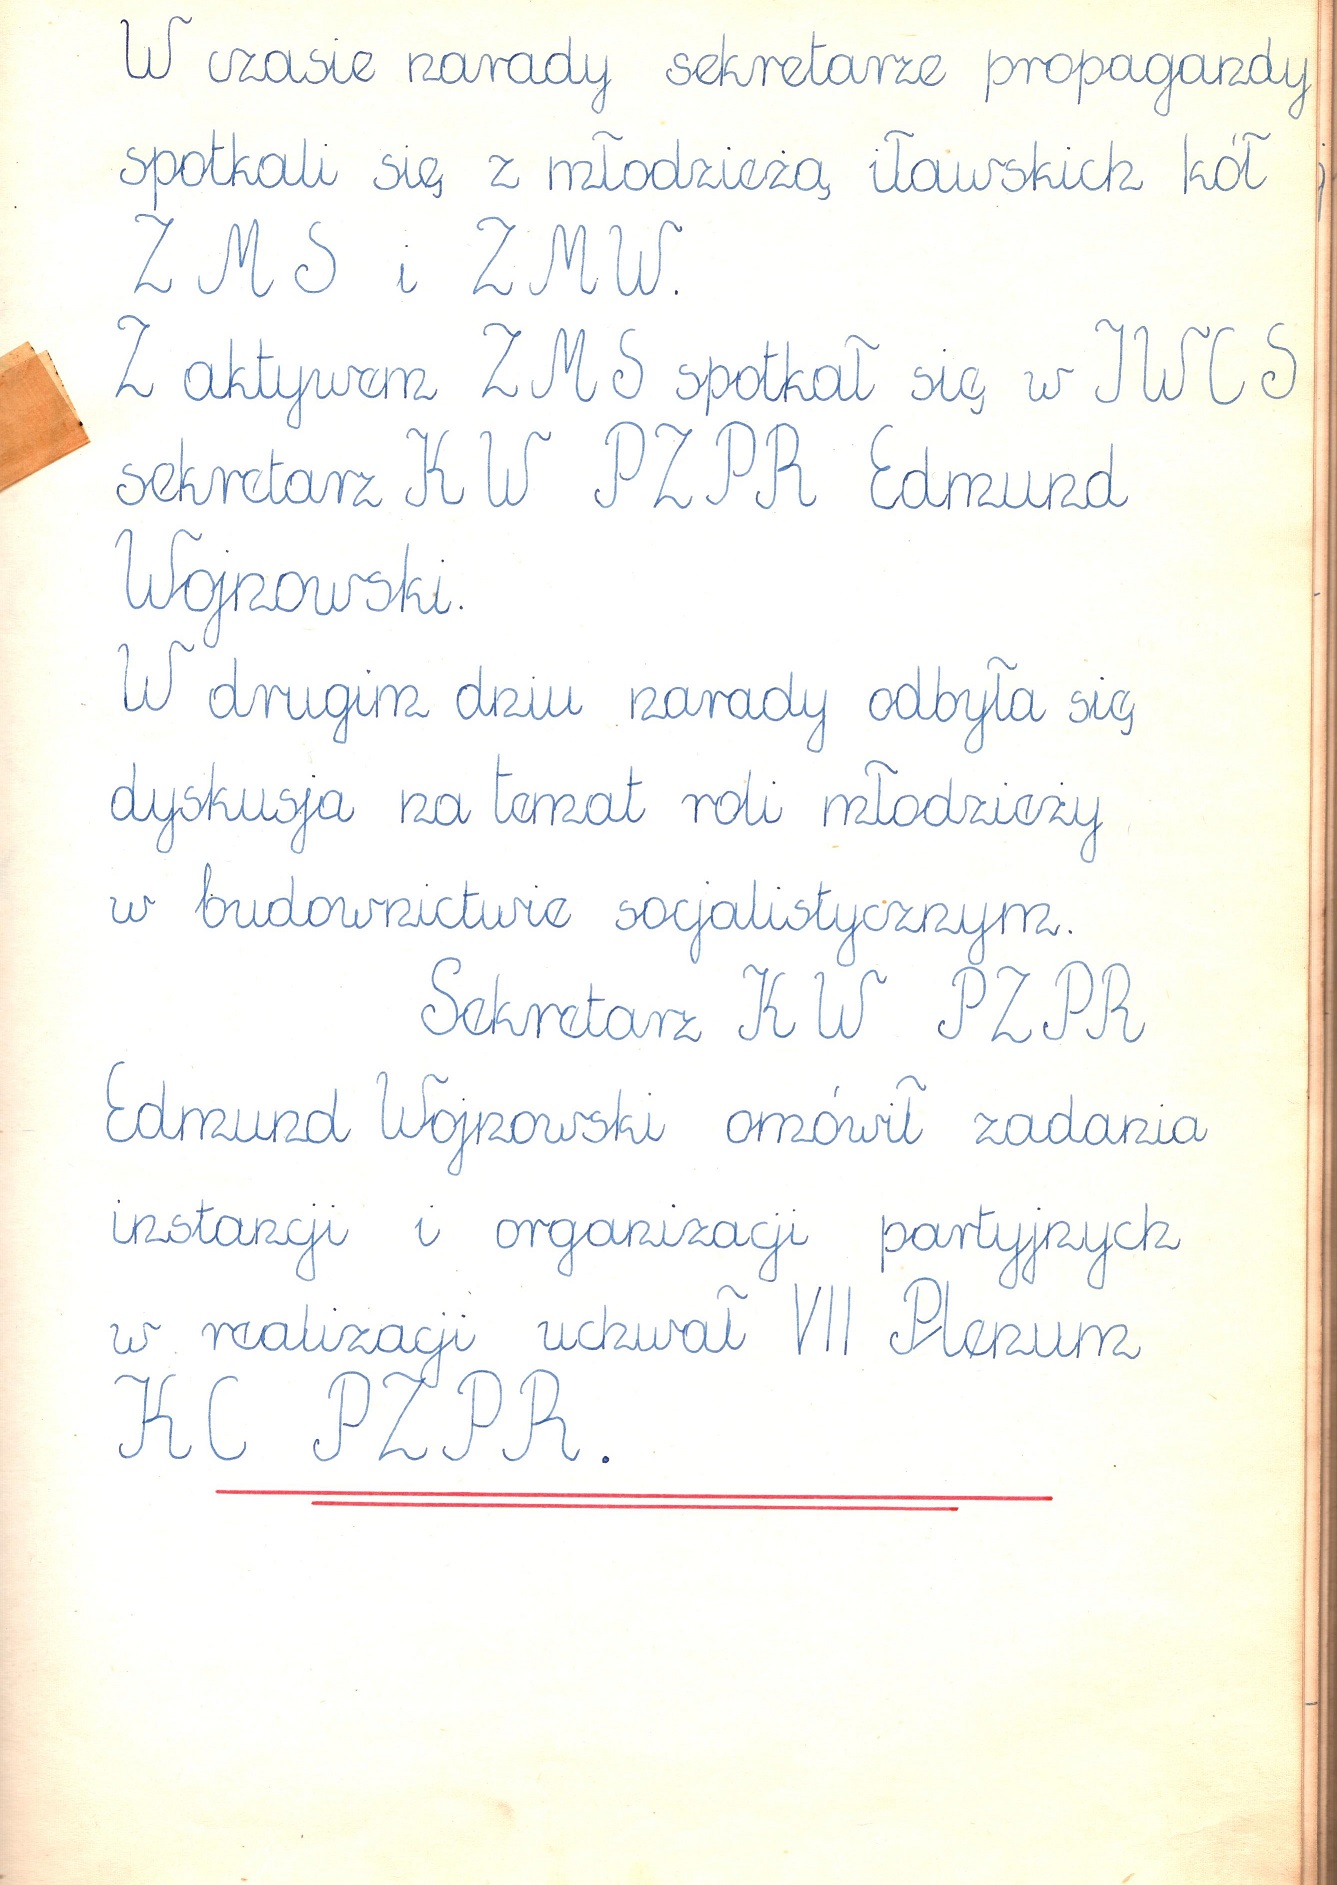 W czasie narady sekretarze propagandy
spotkali się z młodzieżą iławskich kół
ZMS i ZMW.
Z aktywem ZMS spotkał się w IWCS
sekretarz KW PZPR Edmund
Wojnowski.
W drugim dniu narady odbyła się
dyskusja na temat roli młodzieży
w budownictwie socjalistycznym.
Sekretarz KW PZPR
Edmund Wojnowski omówił zadania
instancji i organizacji partyjnych
w realizacji uchwał VII Plenum
KC PZPR.